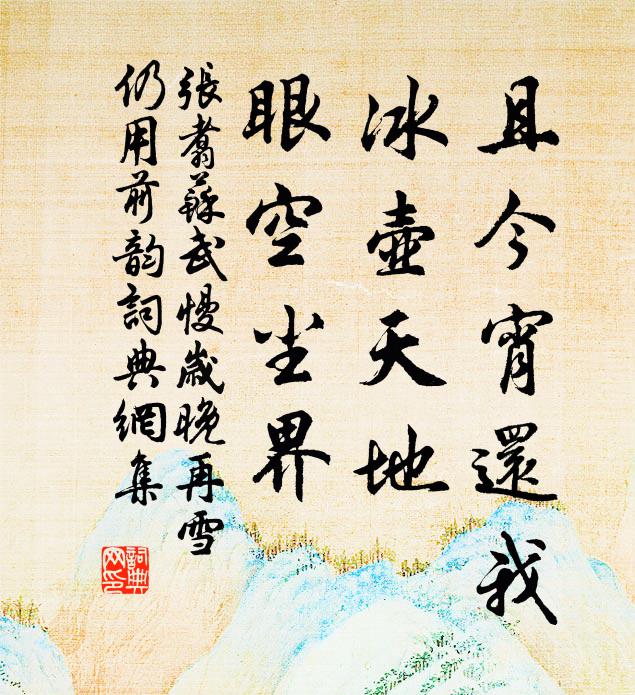 且今宵還我
冰壺天地
眼空塵界
張翥蘇武慢歲晚再雪
仍用前韵詞典網集
詞典网印